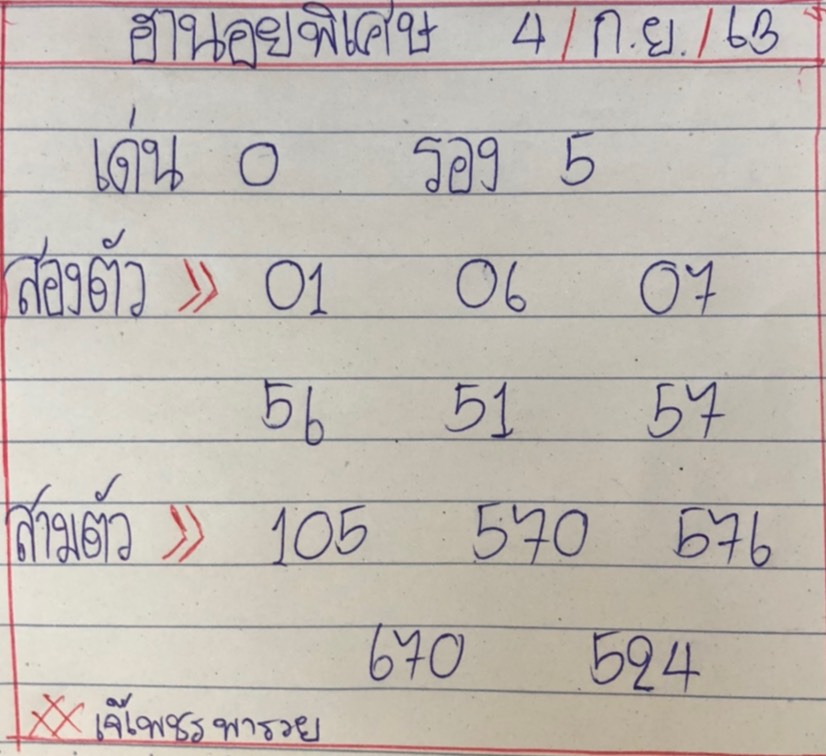 ฮานอยพิเศษ 4/ก.ย./63
เด่น 0 รอง 5
สองตัว » 01 06 07
56 51 57
สามตัว » 105 570 576
670 524
XX เจ๊เพชรพารวย